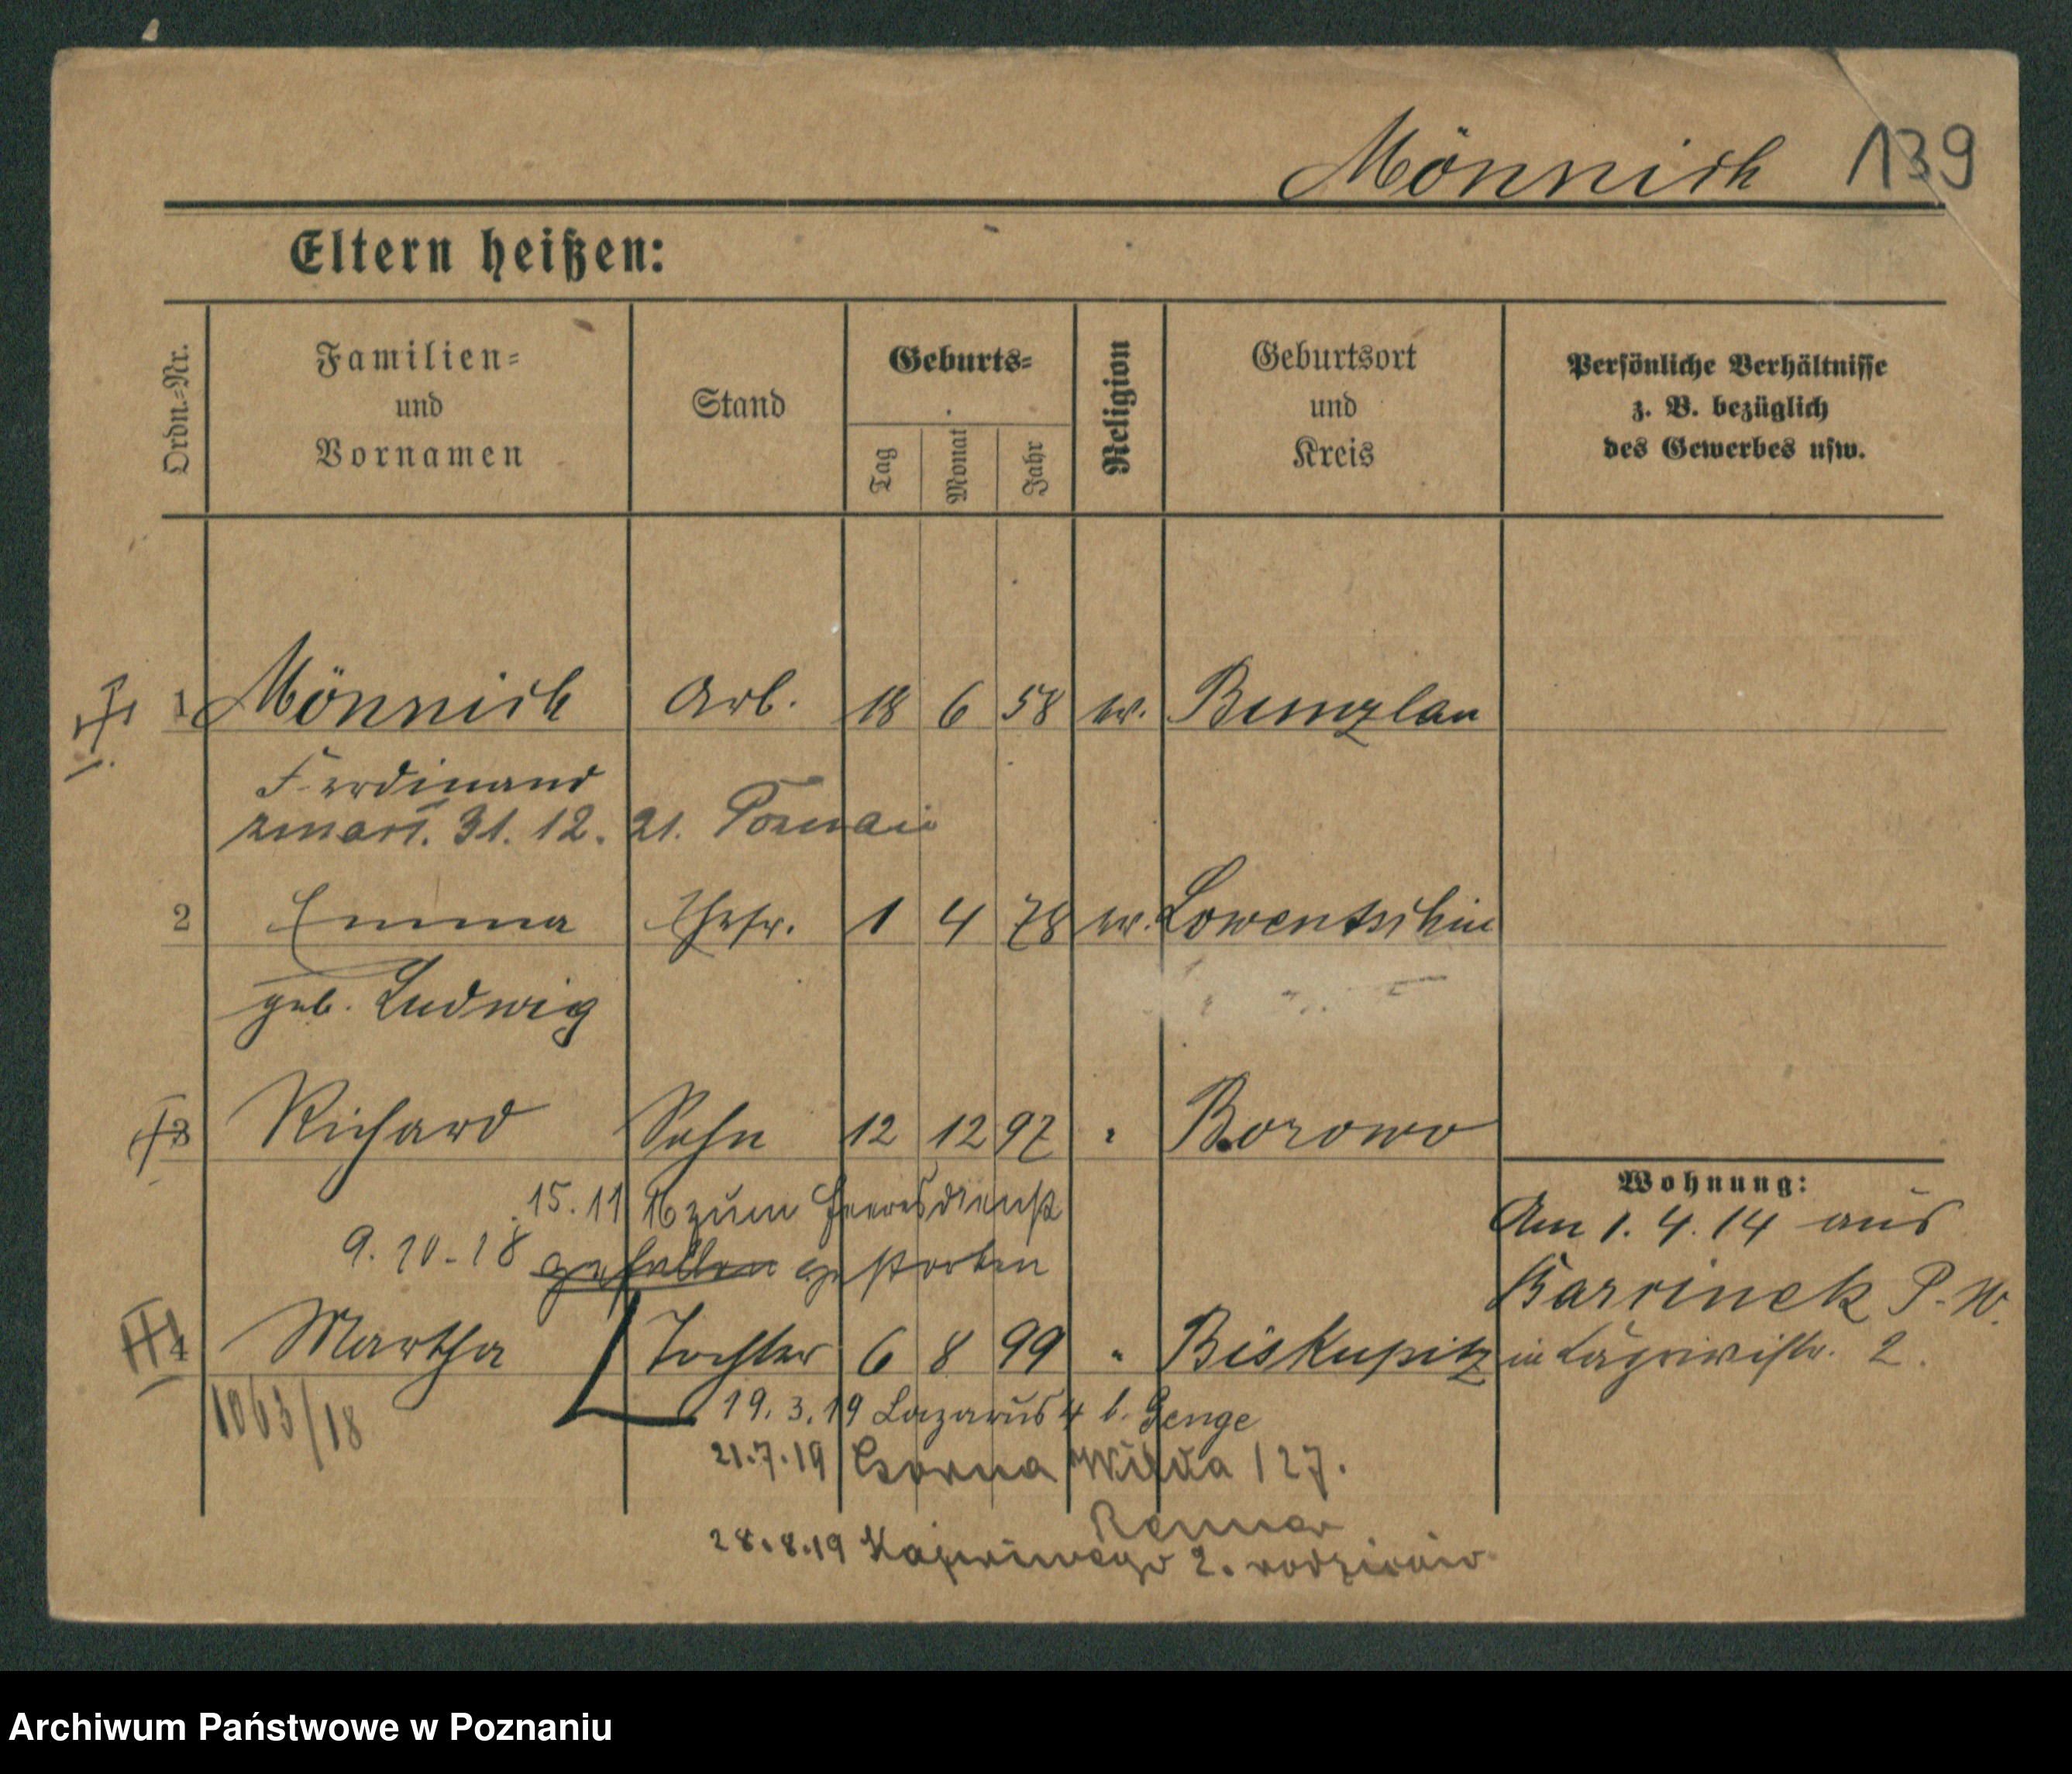 Mönnich 139
Eltern heißen:
Ordn.-Nr. Familien- und Vornamen Stand Geburts- Tag Monat Jahr Religion Geburtsort und Kreis Persönliche Verhältnisse z. B. bezüglich des Gewerbes usw.
1 Mönnich Arb. 18 6 58 ev. Bunzlau
Ferdinand
zmarł. 31. 12. 21. Poznań
2 Emma Ehefr. 1 4 78 ev. Lowentschin
geb. Ludwig
3 Richard Sohn 12 12 97 " Borowo
Wohnung:
15. 11 16 zum Heeresdienst
Am 1. 4. 14 aus
9. 10. 18 gefallen gestorben
P. W.
4 Martha Tochter 6 8 99 " Biskupitz in 2.
1063/18
19. 3. 19 Lazarus 4 b. Genge
21.7.19 Gorna Wilda 127.
Renner
28.8.19 2. rodziców
Archiwum Państwowe w Poznaniu